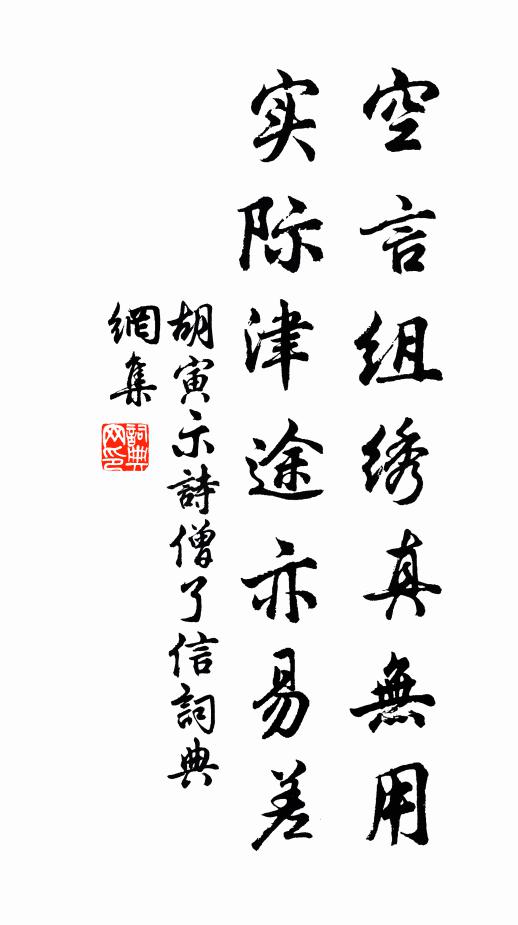 空言组绣真無用
实际津途亦易差
胡寅示詩僧了信詞典
網集
詞典
网印